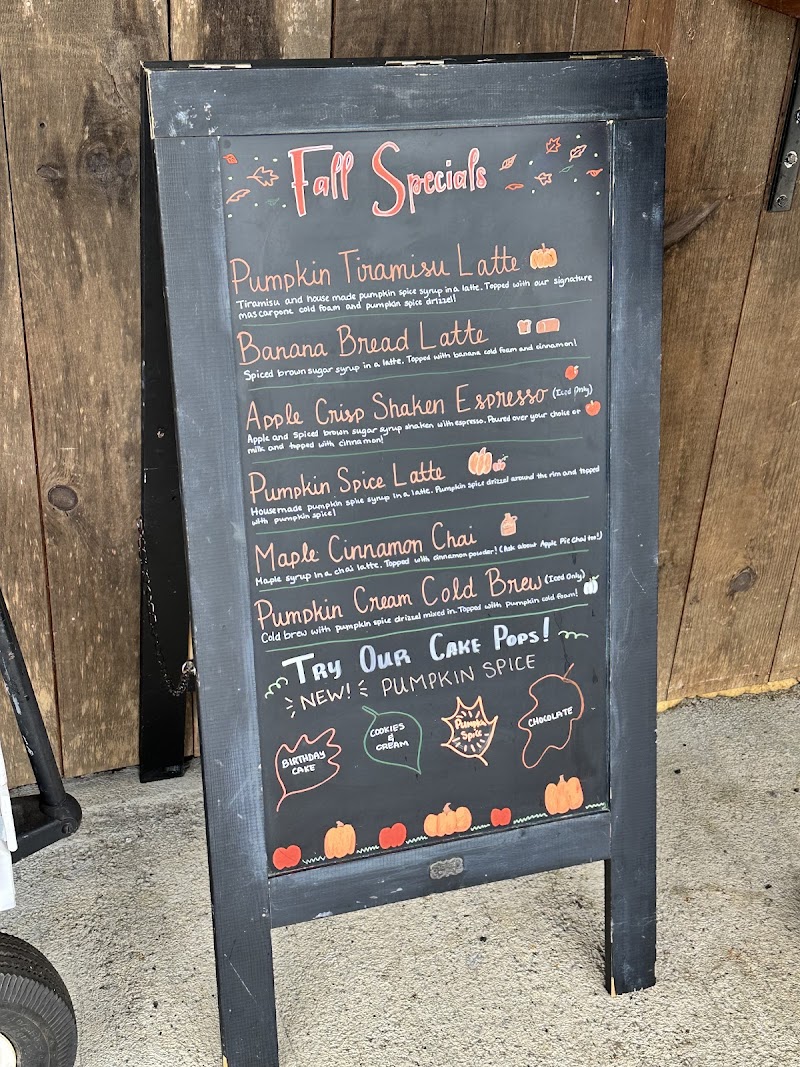 Fall Specials
Pumpkin Tiramisu Latte
Tiramisu and house made pumpkin spice syrup in a latte. Topped with our signature
mascarpone cold foam and pumpkin spice drizzel!
Banana Bread Latte
Spiced brown sugar syrup in a latte. Topped with banana cold foam and cinnamon!
Apple Crisp Shaken Espresso (Iced Only)
Apple and spiced brown sugar syrup shaken with espresso. Poured over your choice of
milk and topped with cinnamon!
Pumpkin Spice Latte
Housemade pumpkin spike syrup in a latte. Pumpkin spice drizzel around the rim and topped
with pumpkin spice!
Maple Cinnamon Chai
Maple syrup in a chai latte. Topped with cinnamon powder! (Ask about Apple Pie Chai too!)
Pumpkin Cream Cold Brew (Iced Only)
Cold brew with pumpkin spice drizzel mixed in. Topped with pumpkin cold foam!
TRY OUR CAKE POPS!
NEW! PUMPKIN SPICE
BIRTHDAY
CAKE
COOKIES
&
CREAM
Pumpkin
Spice
CHOCOLATE